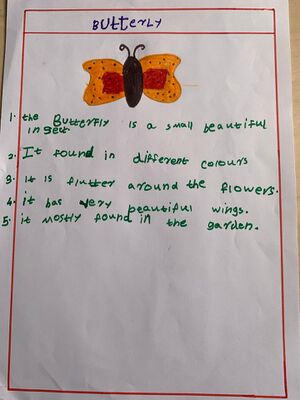 BUtteRLY
1. the BUtteRFLY is a small beautiful
insect.
2. It found in different colours
3. It is flutter around the flowers.
4. it has very beautiful wings.
5. it mostly found in the garden.